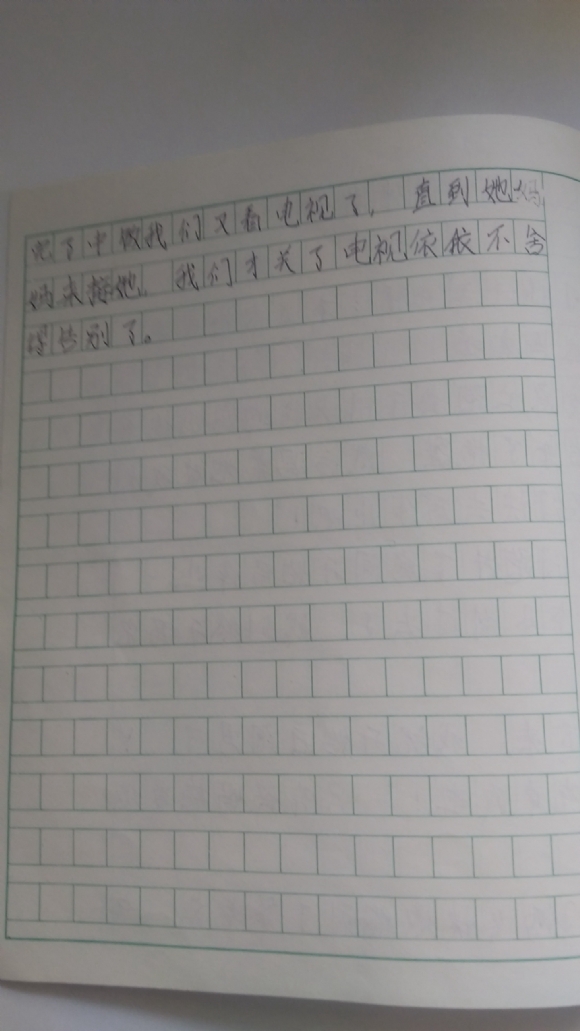 吃了中饭我们又看电视了，直到她妈
妈来接她。我们才关了电视依依不舍
得告别了。